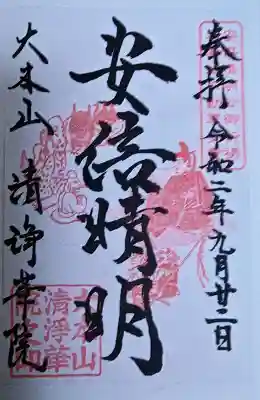 奉拝 令和二年九月廿二日
安倍晴明
大本山 清浄華院
大本山
清浄華
院之印